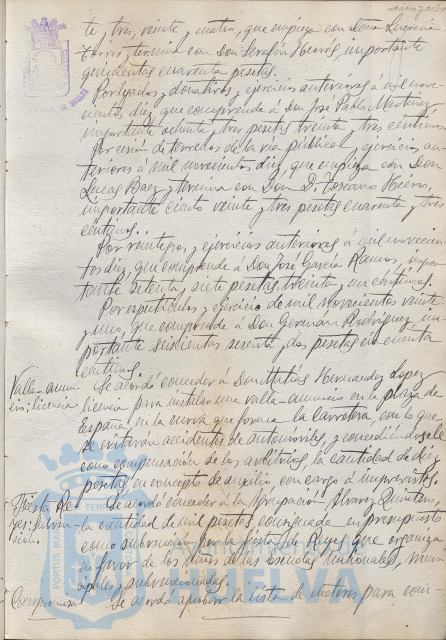 te y tres, veinte y cuatro, que empieza con Dona Lucrecia
Torres y termina con Don Serafín Hierro, importante
quinientas cuarenta pesetas.
Por legados y donativos, ejercicios anteriores á mil nove-
cientos diez, que comprende á Don José Pablo Martinez
importante ochenta y tres pesetas treinta y tres céntimos
Por cesión de terrenos de la vía pública y ejercicios an-
teriores á mil novecientos diez, que empieza con Don
Lucas Baez y termina con Don D. Toscano Hierro,
importante ciento veinte y tres pesetas cuarenta y tres
céntimos.
Por reintegros y ejercicios anteriores á mil novecien-
tos diez, que comprende á Don José García Ramos, impor-
tante setenta y siete pesetas treinta y un céntimos.
Por espectáculos y ejercicio de mil novecientos veinte
y uno, que comprende á Don Germán Rodríguez im-
portante seiscientas sesenta y dos pesetas cincuenta
céntimos.
Valla-anun- Se acordó conceder á Don Matías Hernandez Lopez
cio; licencia licencia para instalar una valla-anuncio en la plaza de
España en la curva que forma la carretera, con lo que
se evitaran accidentes de automóviles y concediéndosele
como compensación de los arbitrios la cantidad de diez
pesetas en concepto de auxilio, con cargo á imprevistos.
Fiesta Re- Se acordó conceder á la Agrupación Alvarez Quintero
yes: subven- la cantidad de mil pesetas consignada en presupuesto
ción. como subvención para la fiesta de Reyes que organiza
en favor de los niños de las escuelas nacionales, muni-
cipales y subvencionadas.
Compromisa- Se acordó aprobar la lista de electores para com-
Ayuntamiento de
HUELVA
PORTUS MARIS